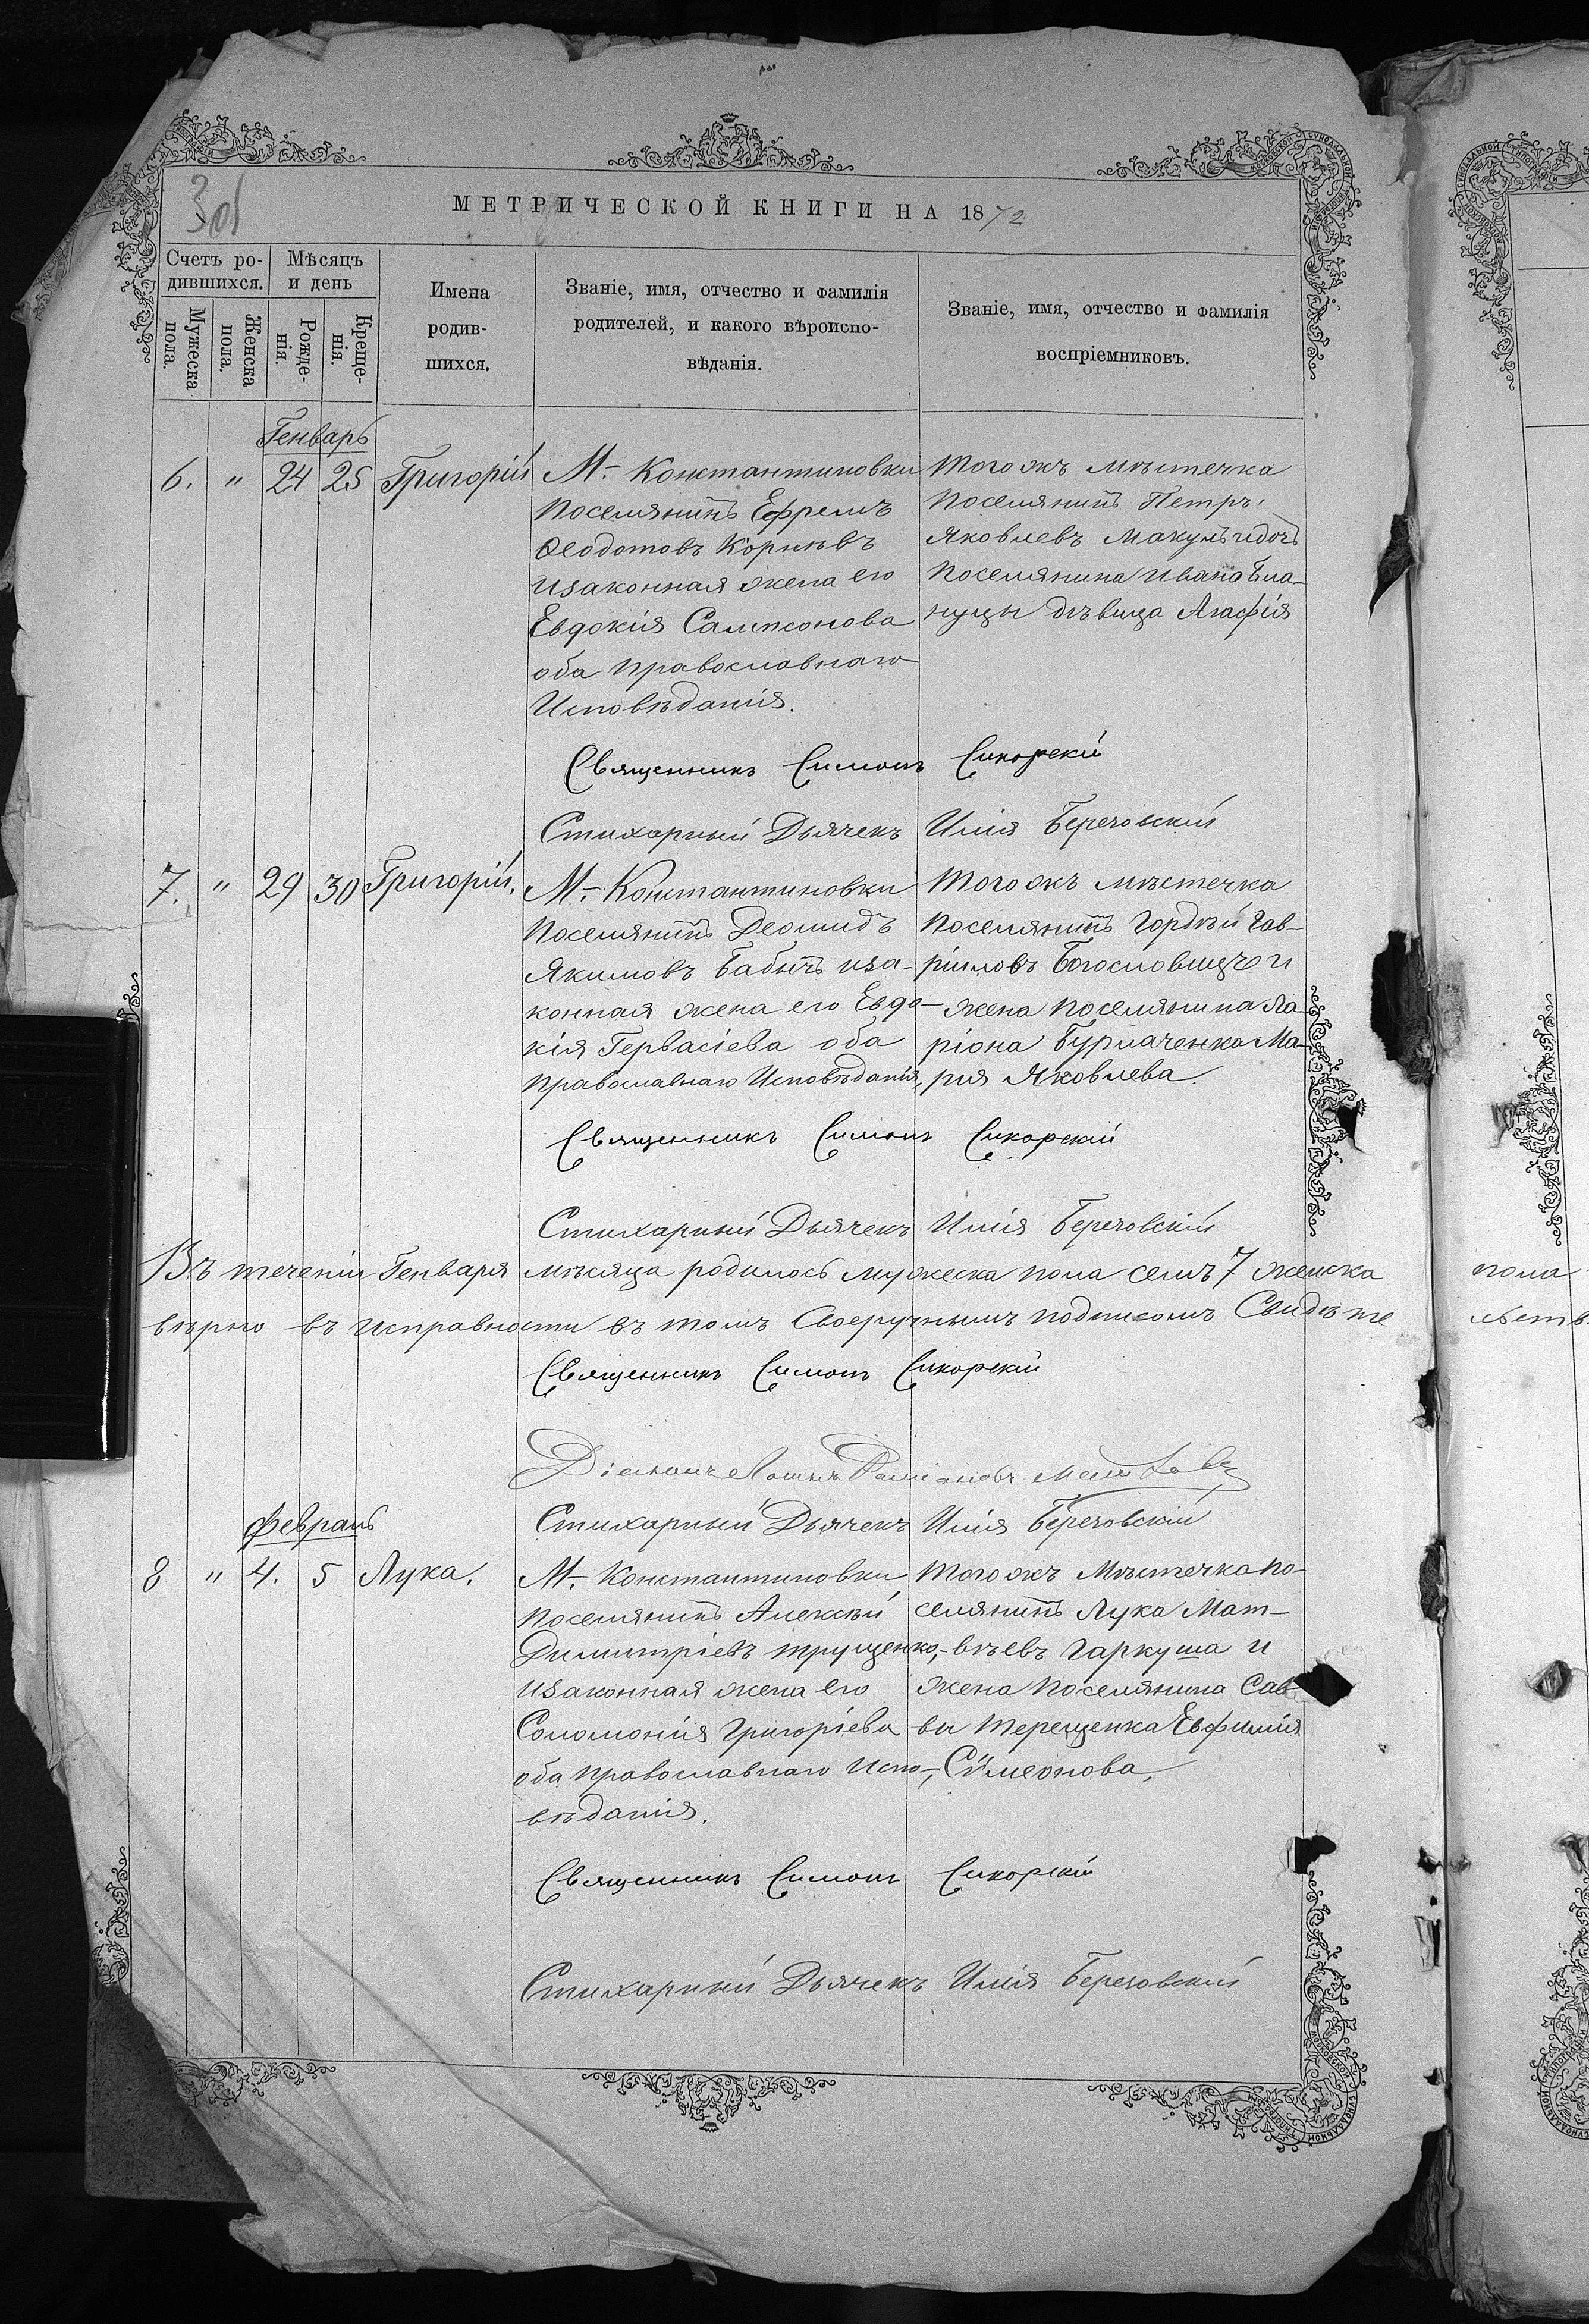 3об
МЕТРИЧЕСКОЙ КНИГИ НА 1872
Счетъ ро-
дившихся.
Мѣсяцъ
и день
Мужеска
пола.
Женска
пола.
Рожде-
нія.
Креще-
нія.
Имена
родив-
шихся.
Званіе, имя, отчество и фамилія
родителей, и какого вѣроиспо-
вѣданія.
Званіе, имя, отчество и фамилія
воспріемниковъ.
Генварь
6. " 24 25 Григорій
М. Константиновки
Поселянинъ Ефремъ
Ѳеодотовъ Корнѣвъ
изаконная жена его
Евдокія Сампсонова
оба Православнаго
Исповѣданія.
Того жъ мѣстечка
Поселянинъ Петръ
Яковлевъ Макула идочь
Поселянина Ивана Бла-
нуцы дѣвица Агафія
Священникъ Симонъ Сикорскій
Стихарный Дьячекъ Илія Березовскій
7. " 29 30 Григорій.
М. Константиновки
Поселянинъ Деомидъ
Якимовъ Бабичъ иза-
конная жена его Евдо-
кія Гервасіева оба
Православнаго Исповѣданія,
Того жъ мѣстечка
Поселянинъ Гордѣй Гав-
ріиловъ Богословице и
жена Поселянина Ла-
ріона Бурлаченка Ма-
рія Яковлева.
Священникъ Симонъ Сикорскій
Стихарный Дьячекъ Илія Березовскій
Въ теченіи Генваря мѣсяца родилось мужеска пола семъ 7 женска
вѣрно въ исправности въ томъ Своеручнымъ подписомъ Свидѣте
пола
льств
Священникъ Симонъ Сикорскій
Діаконъ
Стихарный Дьячекъ Илія Березовскій
Февраль
8 " 4. 5 Лука.
М. Константиновки
Поселянинъ Алексѣй
Димитріевъ Трущенко,
изаконная жена его
Соломонія Григоріева
оба Православнаго Испо-
вѣданія.
Того жъ Мѣстечка По-
селянинъ Лука Мат-
вѣевъ Гаркуша и
жена Поселянина Сав-
вы Терещенка Евфимія
Сѵмеонова,
Священникъ Симонъ Сикорскій
Стихарный Дьячекъ Илія Березовскій